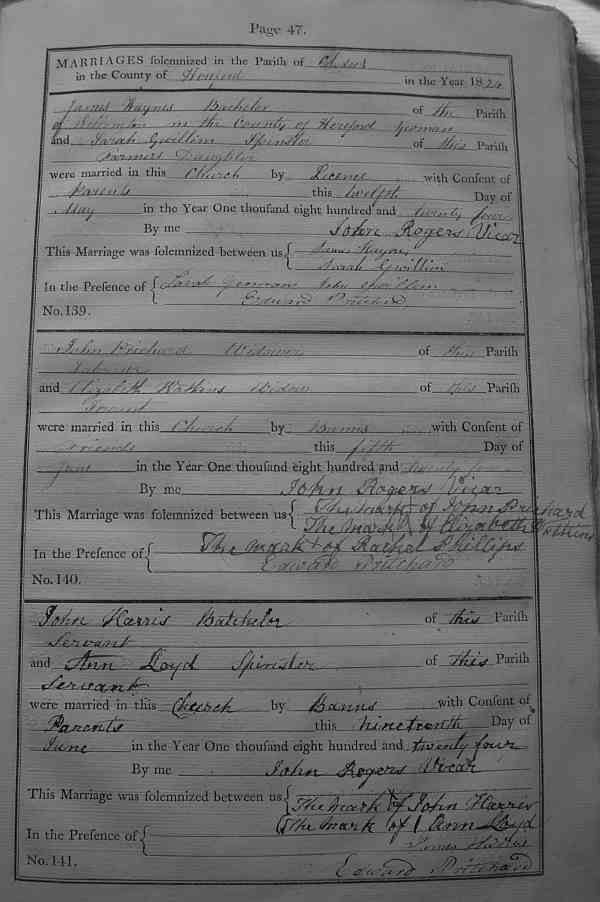 Page 47.
MARRIAGES solemnized in the Parish of
in the County of in the Year 1824
James Haynes Bachelor of the Parish
of in the County of Hereford Yeoman
and Sarah Gwillim Spinster of this Parish
Farmers Daughter
were married in this Church by Licence with Consent of
Parents this twelfth Day of
May in the Year One thousand eight hundred and twenty four
By me John Rogers Vicar
This Marriage was solemnized between us James Haynes
Sarah Gwillim
In the Presence of Sarah John Gwillim
Edward Pritchard
No. 139.
John Prichard Widower of this Parish
Labourer
and Elizabeth Watkins Widow of this Parish
Servant
were married in this Church by Banns with Consent of
Friends this fifth Day of
June in the Year One thousand eight hundred and twenty four
By me John Rogers Vicar
This Marriage was solemnized between us The mark of John Prichard
The Mark of Elizabeth Watkins
In the Presence of The mark + of Rachel Phillips
Edward Pritchard
No. 140.
John Harris Batchelor of this Parish
Servant
and Ann Loyd Spinster of this Parish
Servant
were married in this Church by Banns with Consent of
Parents this nineteenth Day of
June in the Year One thousand eight hundred and twenty four
By me John Rogers Vicar
This Marriage was solemnized between us The Mark of John Harris
The mark of Ann Loyd
In the Presence of
No. 141. Edward Pritchard